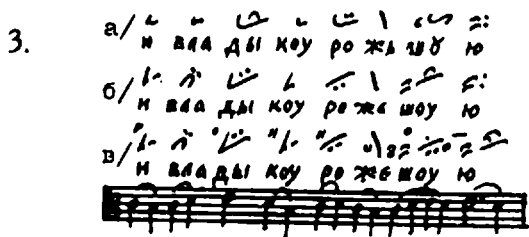 3.
а/
и вла ды коу ро жь шꙋ ю
б/
и вла ды коу ро же шоу ю
в/
и вла ды коу ро же шоу ю